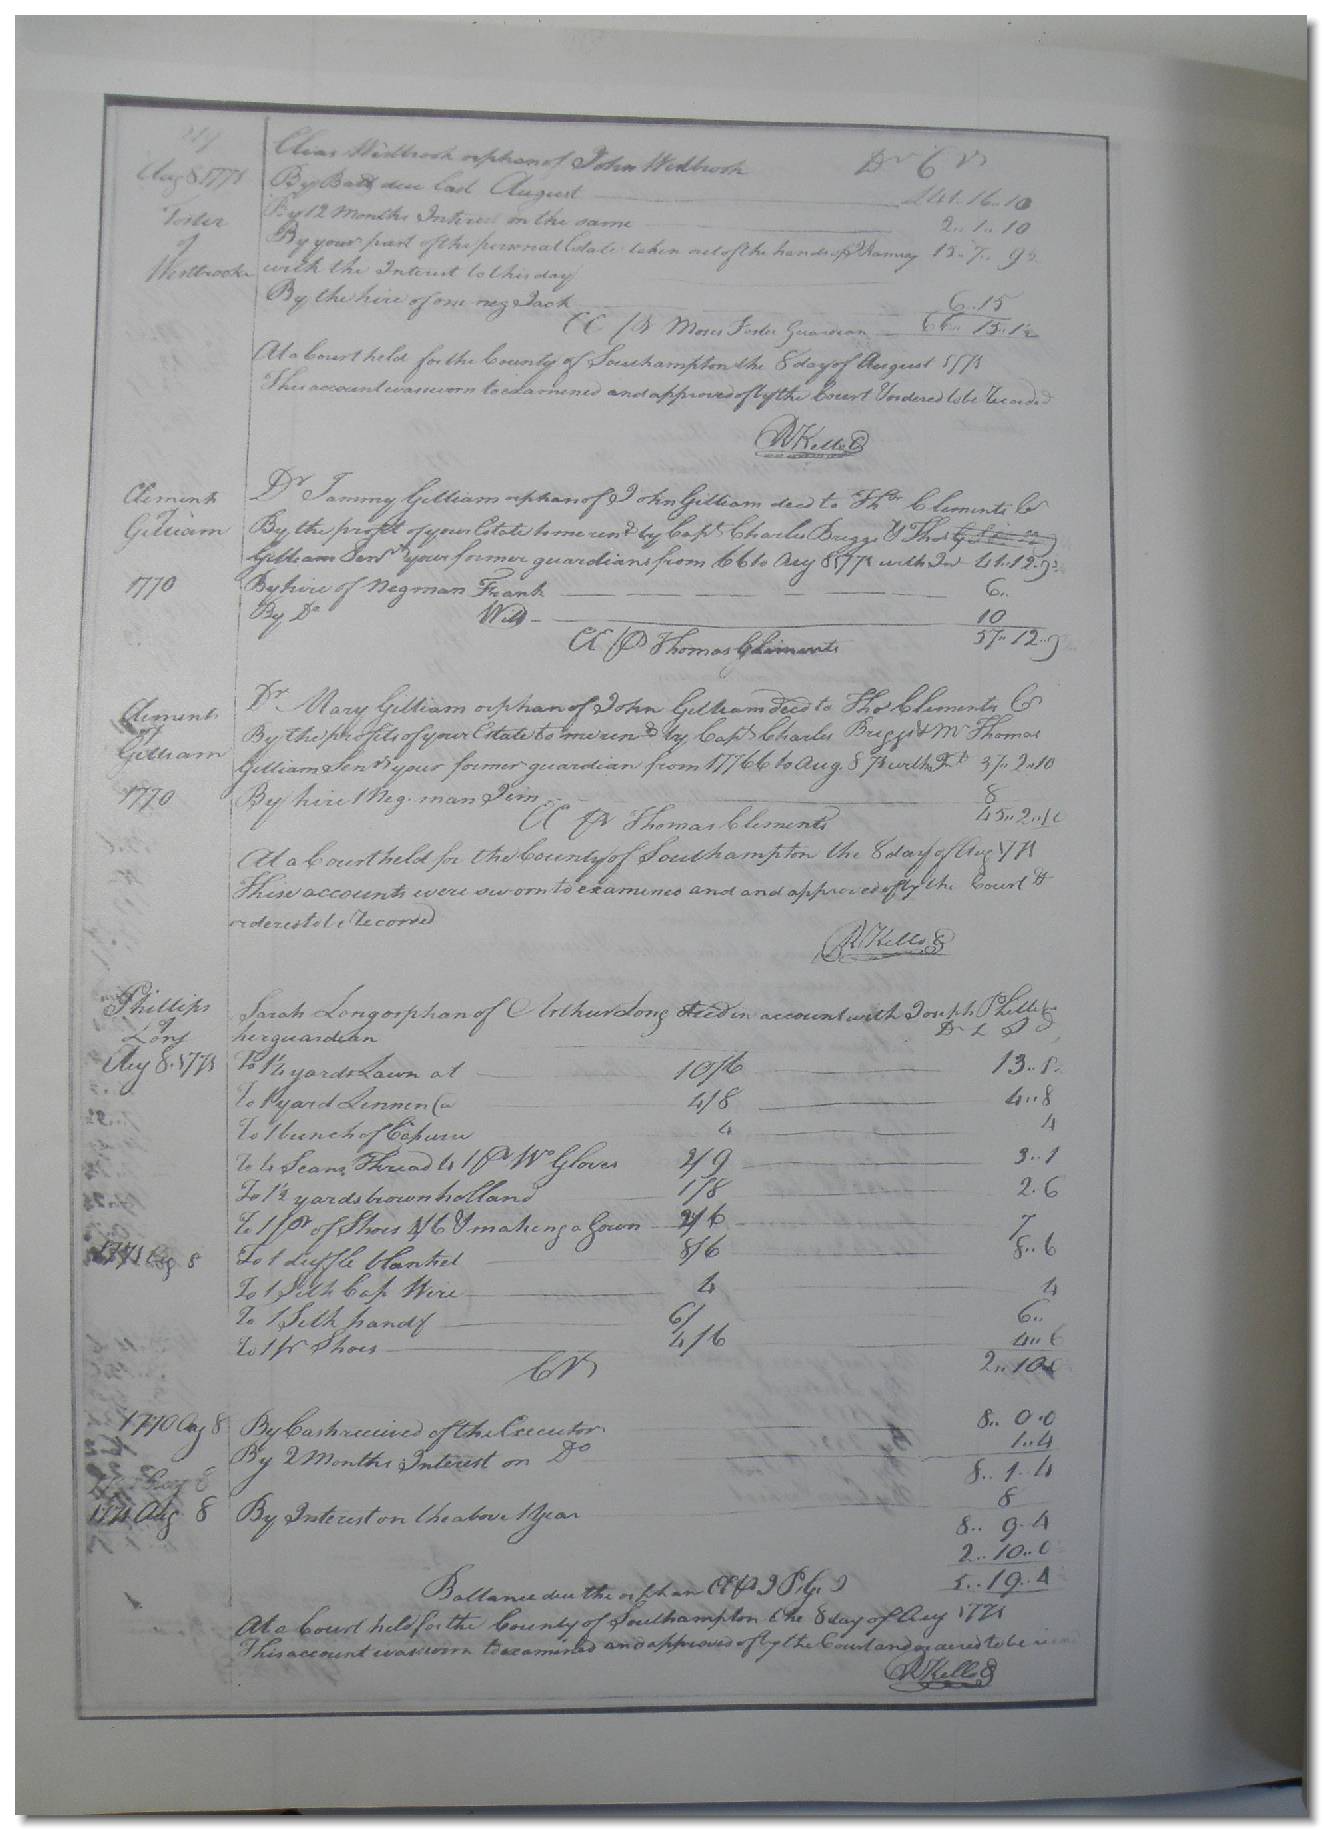 Aug 8 1771
Foster
of
Westbrooke
Elias Westbrook orphan of John Westbrook Dr Cr
By Ball due last August £41..16..10
By 12 Months Interest on the same 2..1..10
By your part of the personal Estate taken out of the hands of Ramsey 15..7..9½
with the Interest to this day
By the hire of one neg Jack 6..15
EE Pr Moses Foster Guardian 66..15..1½
At a Court held for the County of Southampton the 8 day of August 1771
This account was sworn to examened and approved of by the Court & ordered to be Recorded
R Kello C
Clements
Gilliam
Dr Tammy Gilliam orphan of John Gilliam decd to Thos Clements Cr
By the profit of your Estate to me rend by Capt Charles Briggs & Thos
Gilliam Senr your former guardians from 66 to Aug 8 1771 with Int 41..12..9
1770 By hire of Neg man Frank 6..
By Do Will 10
EE Pr Thomas Clements 57..12..9
Clements
of
Gilliam
Dr Mary Gilliam orphan of John Gilliam decd to Thos Clements Cr
By the profits of your Estate to me rend by Capt Charles Briggs & Mr Thomas
Gilliam Senr your former guardian from 17766 to Aug. 8 71 with Int 37..2..10
1770 By hire 1 Neg. man Jim 8
EE Pr Thomas Clements 45..2..10
At a Court held for the County of Southampton the 8 day of Aug 1771
These accounts were sworn to examened and and approved of by the Court &
ordered to be Recorded
R Kello C
Phillips
of
Long
Sarah Long orphan of Arthur Long decd in account with Joseph Phillips
her guardian Dr L S D
Aug 8. 1771 To 1¼ yards Lawn at 10/6 13..1½
To 1 yard Linnen @ 4/8 4..8
To 1 bunch of 4 4
To 4 Scans Thread 4 1 Pr Wo Gloves 2/9 3..1
To 1½ yards brown holland 1/8 2.6
To 1 Pr of Shoes 4/6 & making a Gown 2/6 7
1771 Aug 8 To 1 duffle blanket 8/6 8..6
To 1 Silk Cap Wire 4 4
To 1 Silk handf 6/ 6..
To 1 pr Shoes 4/6 4..6
Cr 2..10..
1770 Aug 8 By Cash received of the Executor 8..0.0
By 2 Months Interest on Do 1..4
8..1..4
1771 Aug 8 By Interest on the above 1 Year 8
8..9..4
2..10..0
Ballance due the orphan EE Pr J P. G. 5..19..4
At a Court held for the County of Southampton the 8 day of Aug 1771
This account was sworn to examined and approved of by the Court and ordered to be
R Kello C